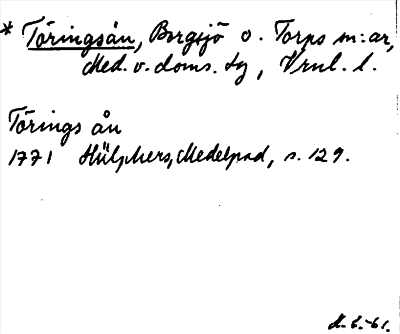 * Töringsån, Borgsjö o. Torps m:ar,
Med. v. doms. tg, Vrnl. l.
Törings ån
1771 Hülphers, Medelpad, s. 129.